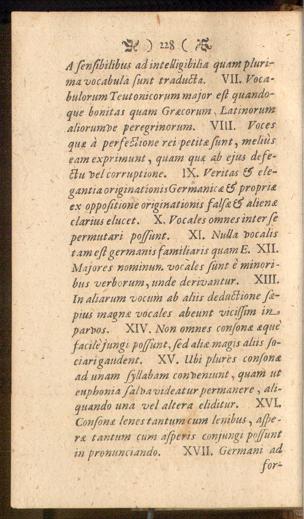 ) 228 (
A sensibilibus ad intelligibilia quam pluri-
ma vocabula sunt traducta. VII. Voca-
bulorum Teutonicorum major est quando-
que bonitas quam Græcorum, Latinorum
aliorumve peregrinorum. VIII. Voces
quæ à perfectione rei petitæ sunt, meliùs
eam exprimunt, quam quæ ab ejus defe-
ctu vel corruptione. IX. Veritas & ele-
gantia originationis Germanicæ & propriæ
ex oppositione originationis falsæ & alienæ
clarius elucet. X. Vocales omnes inter se
permutari possunt. XI. Nulla vocalis
tam est germanis familiaris quam E. XII.
Majores nominum vocales sunt è minori-
bus verborum, unde derivantur. XIII.
In aliarum vocum ab aliis deductione sæ-
pius magnæ vocales abeunt vicissim in
parvos. XIV. Non omnes consonæ æque
facilè jungi possunt, sed aliæ magis aliis so-
ciari gaudent. XV. Ubi plures consonæ
ad unam syllabam conveniunt, quam ut
euphonia salva videatur permanere, ali-
quando una vel altera eliditur. XVI.
Consonæ lenes tantum cum lenibus, aspe-
ræ tantum cum asperis conjungi possunt
in pronunciando. XVII. Germani ad
for-